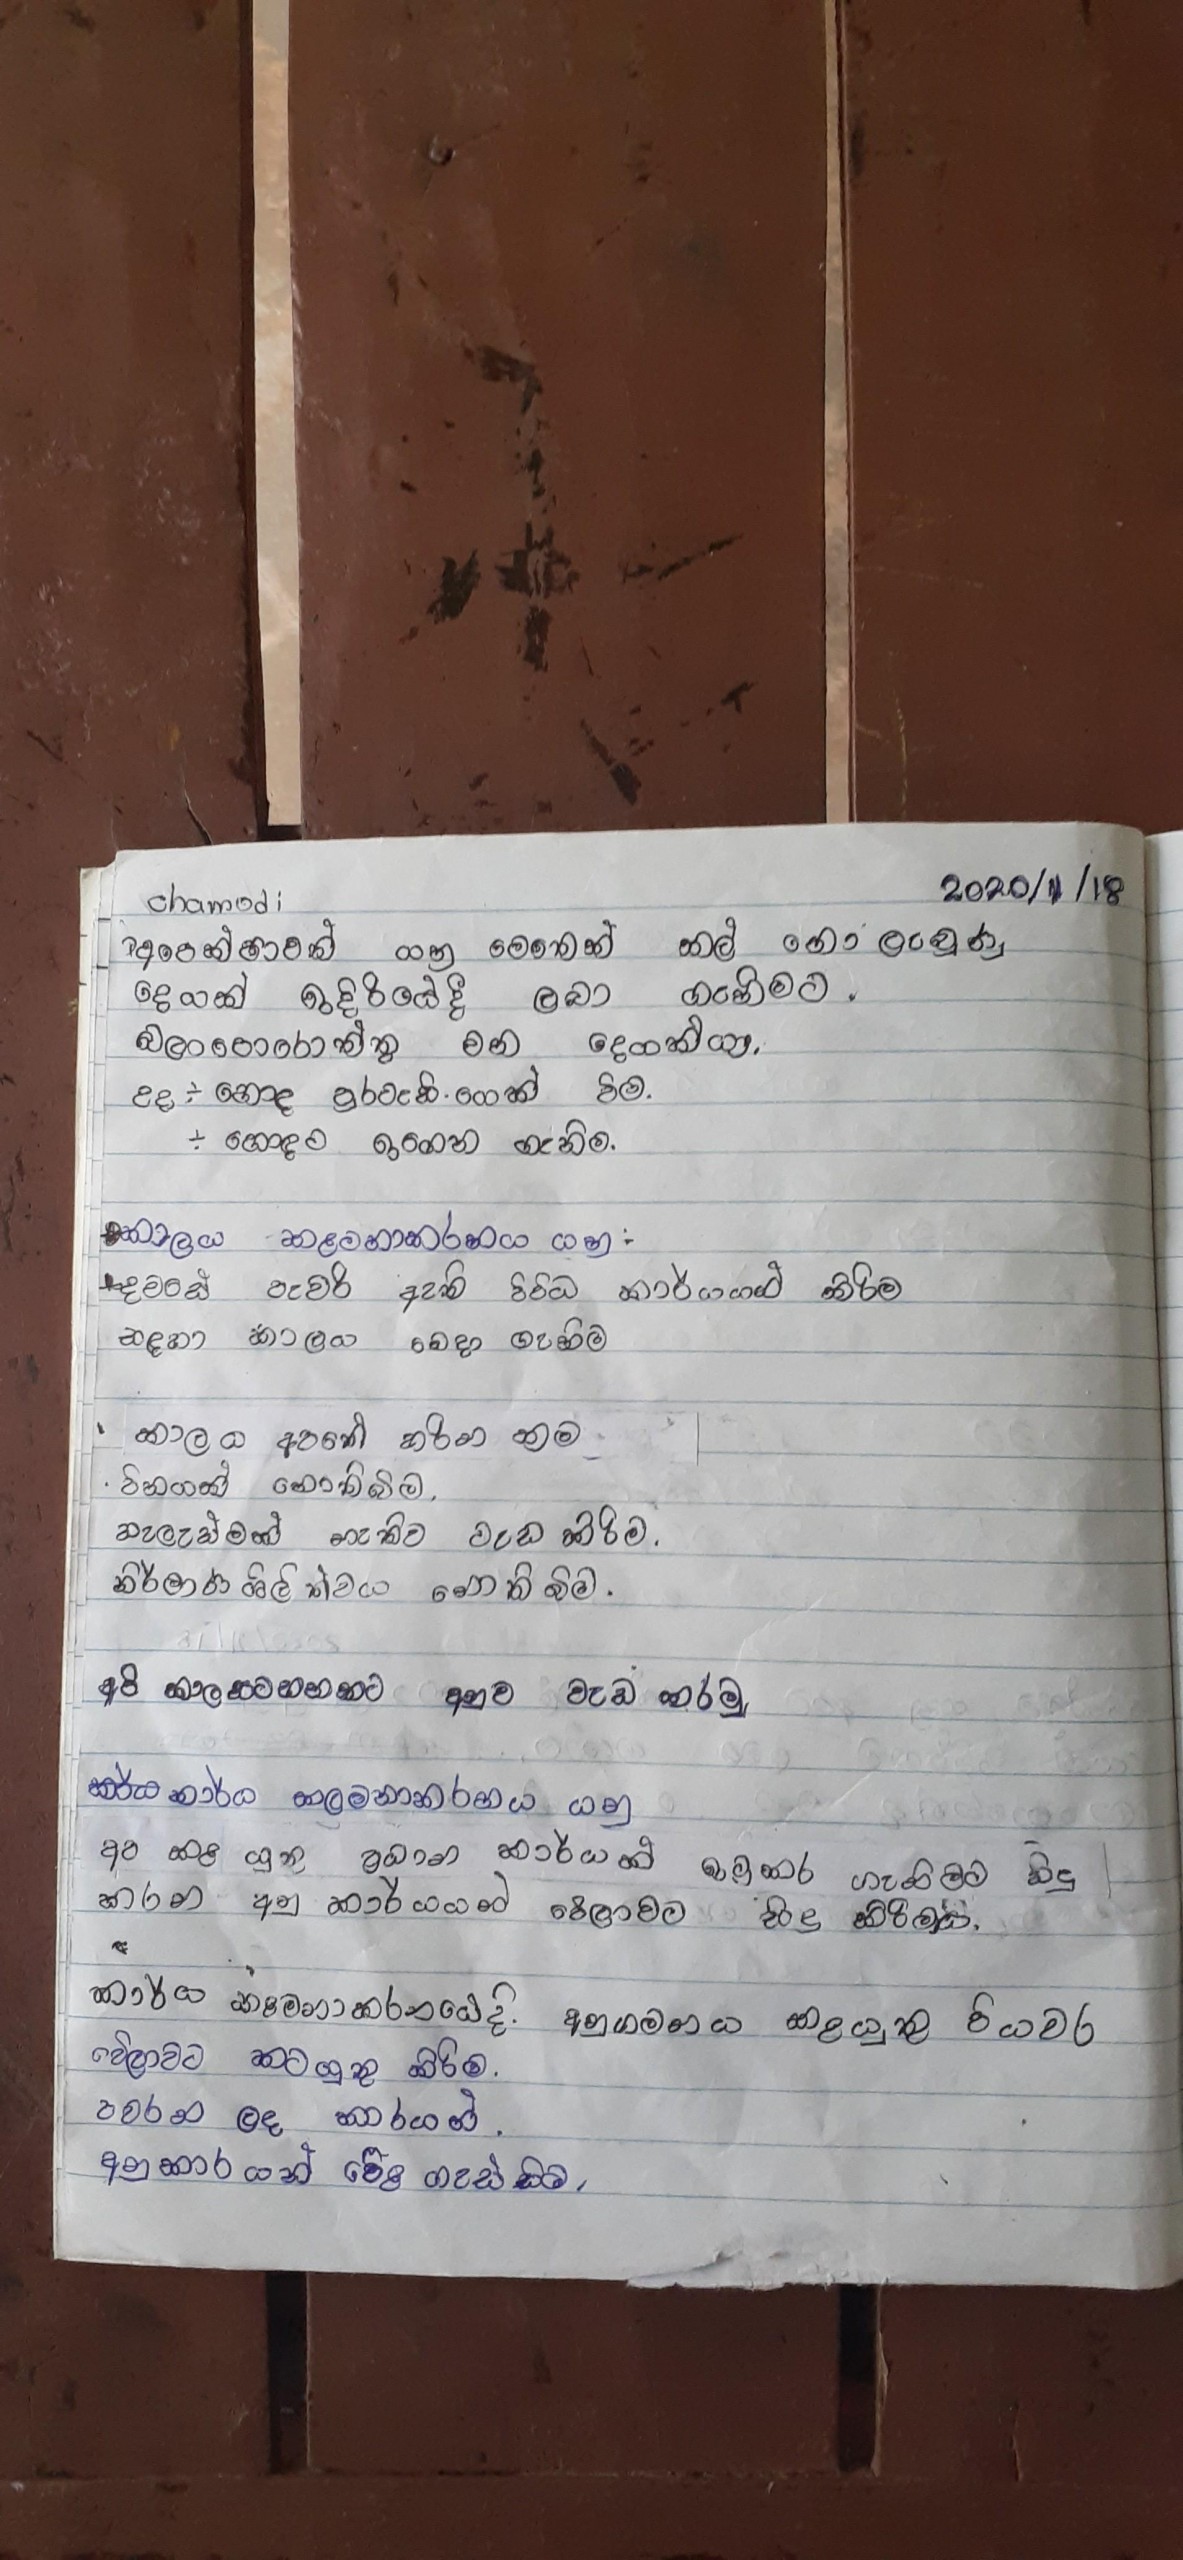 chamodi 2020/11/18
අපෙක්ෂාවක් යනු මෙතෙක් කල් නො ලැබුණු
දෙයක් ඉදිරියේදී ලබා ගැනිමට.
බලාපොරොත්තු වන දෙයක්ය.
උදා ÷ හොද පුරවැසි.යෙක් විම.
÷ හොඳට ඉගෙන ගැනිම.
කාලය කළමනාකරනය යනු ÷
දවසේ පැවරි ඇති විවිධ කාර්යයන් කිරිම
සඳහා කාලය බෙදා ගැනිම
කාලය අපතේ හරින ක්‍රම
විනයක් නොතිබිම.
සැලැස්මක් නැතිව වැඩ කිරිම.
නිර්මාණශිලිත්වය නොතිබිම.
අපි කාලසටහනකට අනුව වැඩ කරමු
කාර්ය කලමනාකරනය යනු
අප කළ යුතු ප්‍රධාන කාර්යක් ඉටුකර ගැනිමට සිදු
කරන අනු කාර්යයන් වේලාවට සිදු කිරිමයි.
කාර්ය කළමනාකරනයේදි. අනුගමනය කළයුතු පියවර
වේලාවට කටයුතු කිරිම.
පවරන ලද කාරයන්.
අනුකාරයන් පෙළ ගැස්සිම.